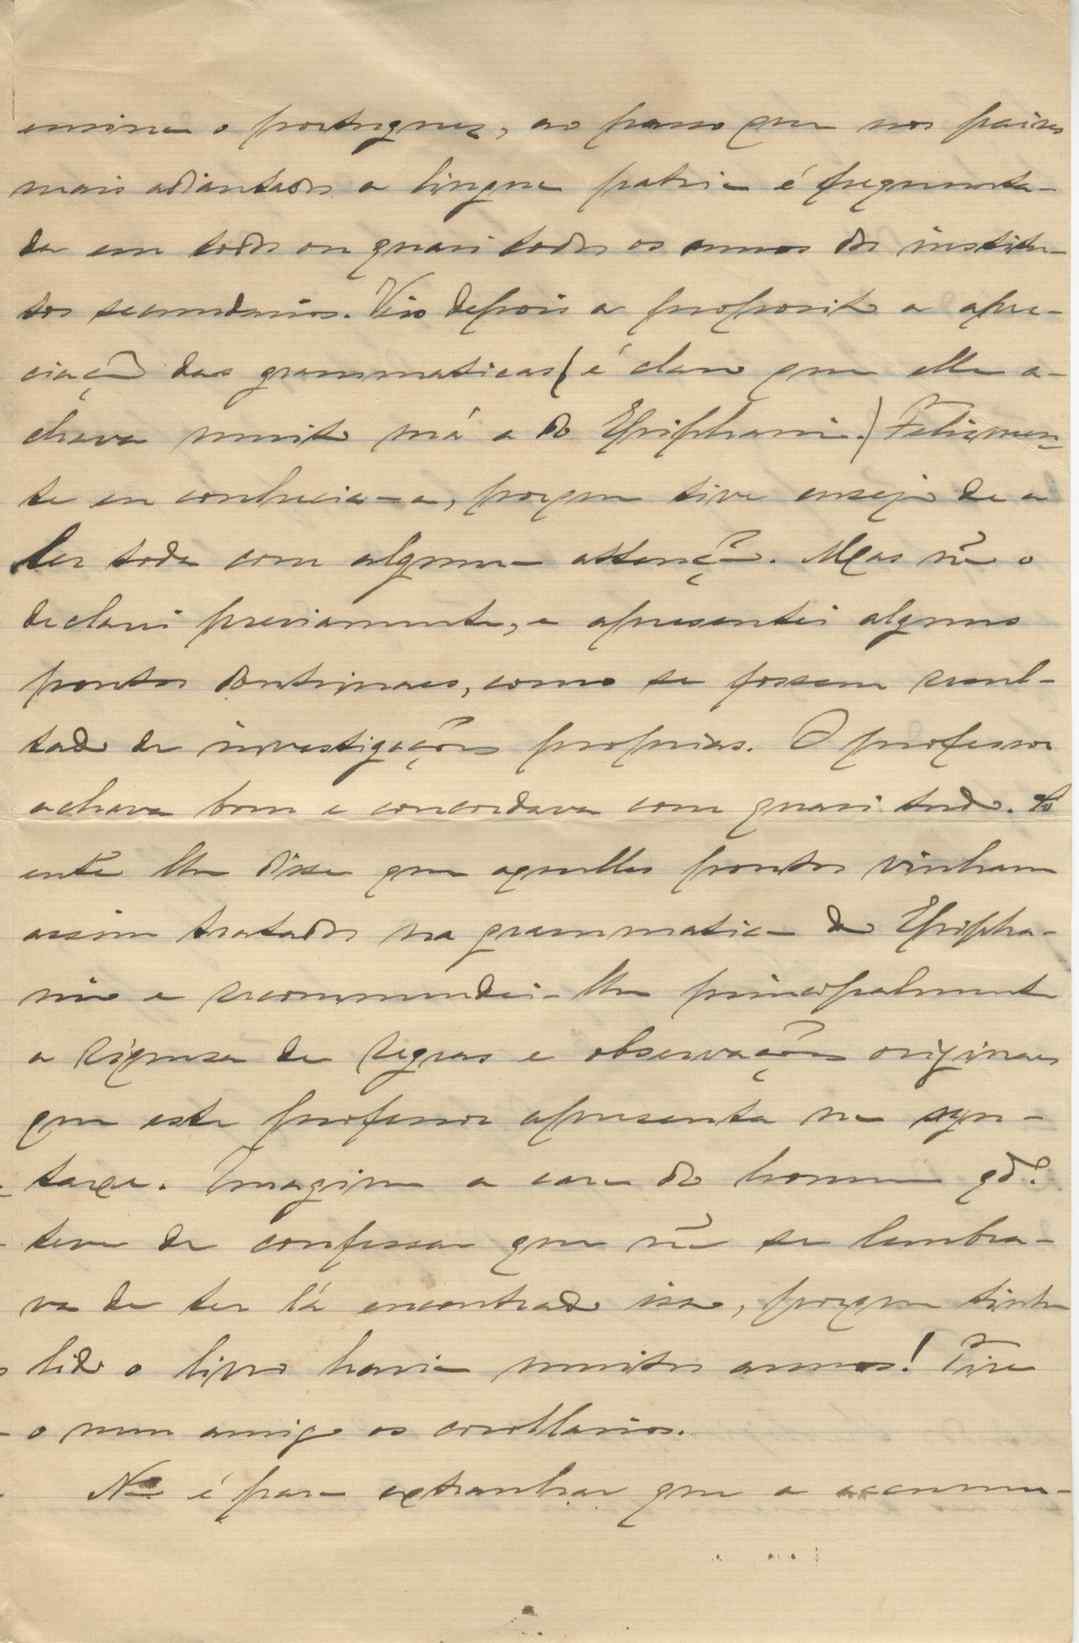 ensina o portuguez, ao passo que nos paizes
mais adiantados a lingua patria é frequenta-
da em todos ou quasi todos os annos dos institu-
tos secundarios. Veio depois a proposito a apre-
ciação das grammaticas (é claro que elle a-
chava muito má a do Epiphanio.) Felizmen-
te eu conhecia-a, porque tive ensejo de a
ler toda com alguma attenção. Mas não o
declarei previamente, e apresentei alguns
pontos doutrinaes, como se fossem resul-
tado de investigações proprias. O professor
achava bom e concordava com quasi tudo.
então lhe disse que aquelles pontos vinham
assim tratados na grammatica de Epipha-
nio e recommendei-lhe principalmente
a riqueza de regras e observações originaes
que este professor apresenta na syn-
taxe. Imagine a cara do homem qdo.
teve de confessar que não se lembra-
va de ter lá encontrado isso, porque tinha
lido o livro havia muitos annos! Tire
o meu amigo os corollarios.
Não é para extranhar que a accumu-